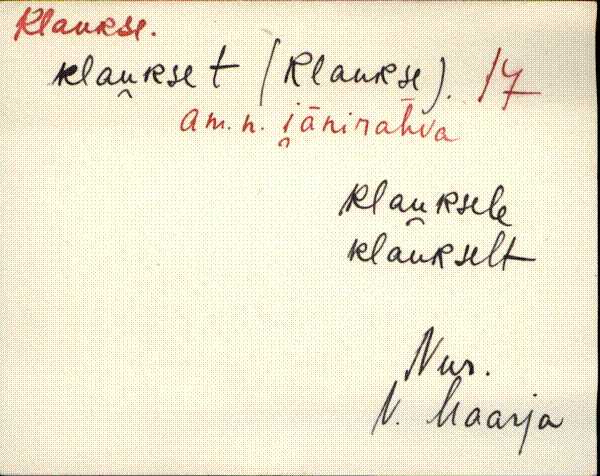 Klaukse.
klau̯kset (Klaukse). 17
am. n. i̯ānirahva
klau̯ksele
klaukselt
Nur.
V. Maarja